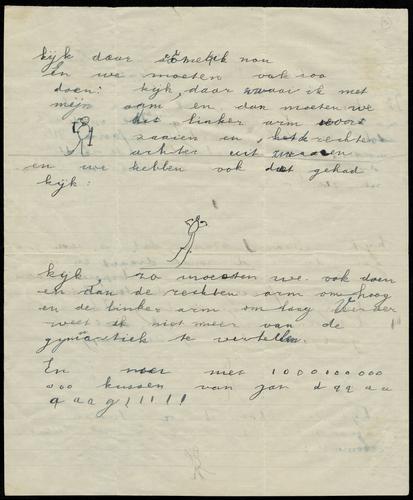 kijk daar stmeek nou
en we moeten ook zoo
doen: kijk, daar zwaai ik met
mijn arm en dan moeten we
het linker arm voor
zaaien en het rechter
achter uit zwaaien
en we hebben ook dit gehad
kijk:
kijk, zo moesten we ook doen
en dan de rechten arm om hoog
en de linker arm om laag Verder
weet ik niet meer van de
gymnastiek te vertellen.
En met 1000000000
000 kussen van jan d a a a a
a a a g ! ! ! ! !